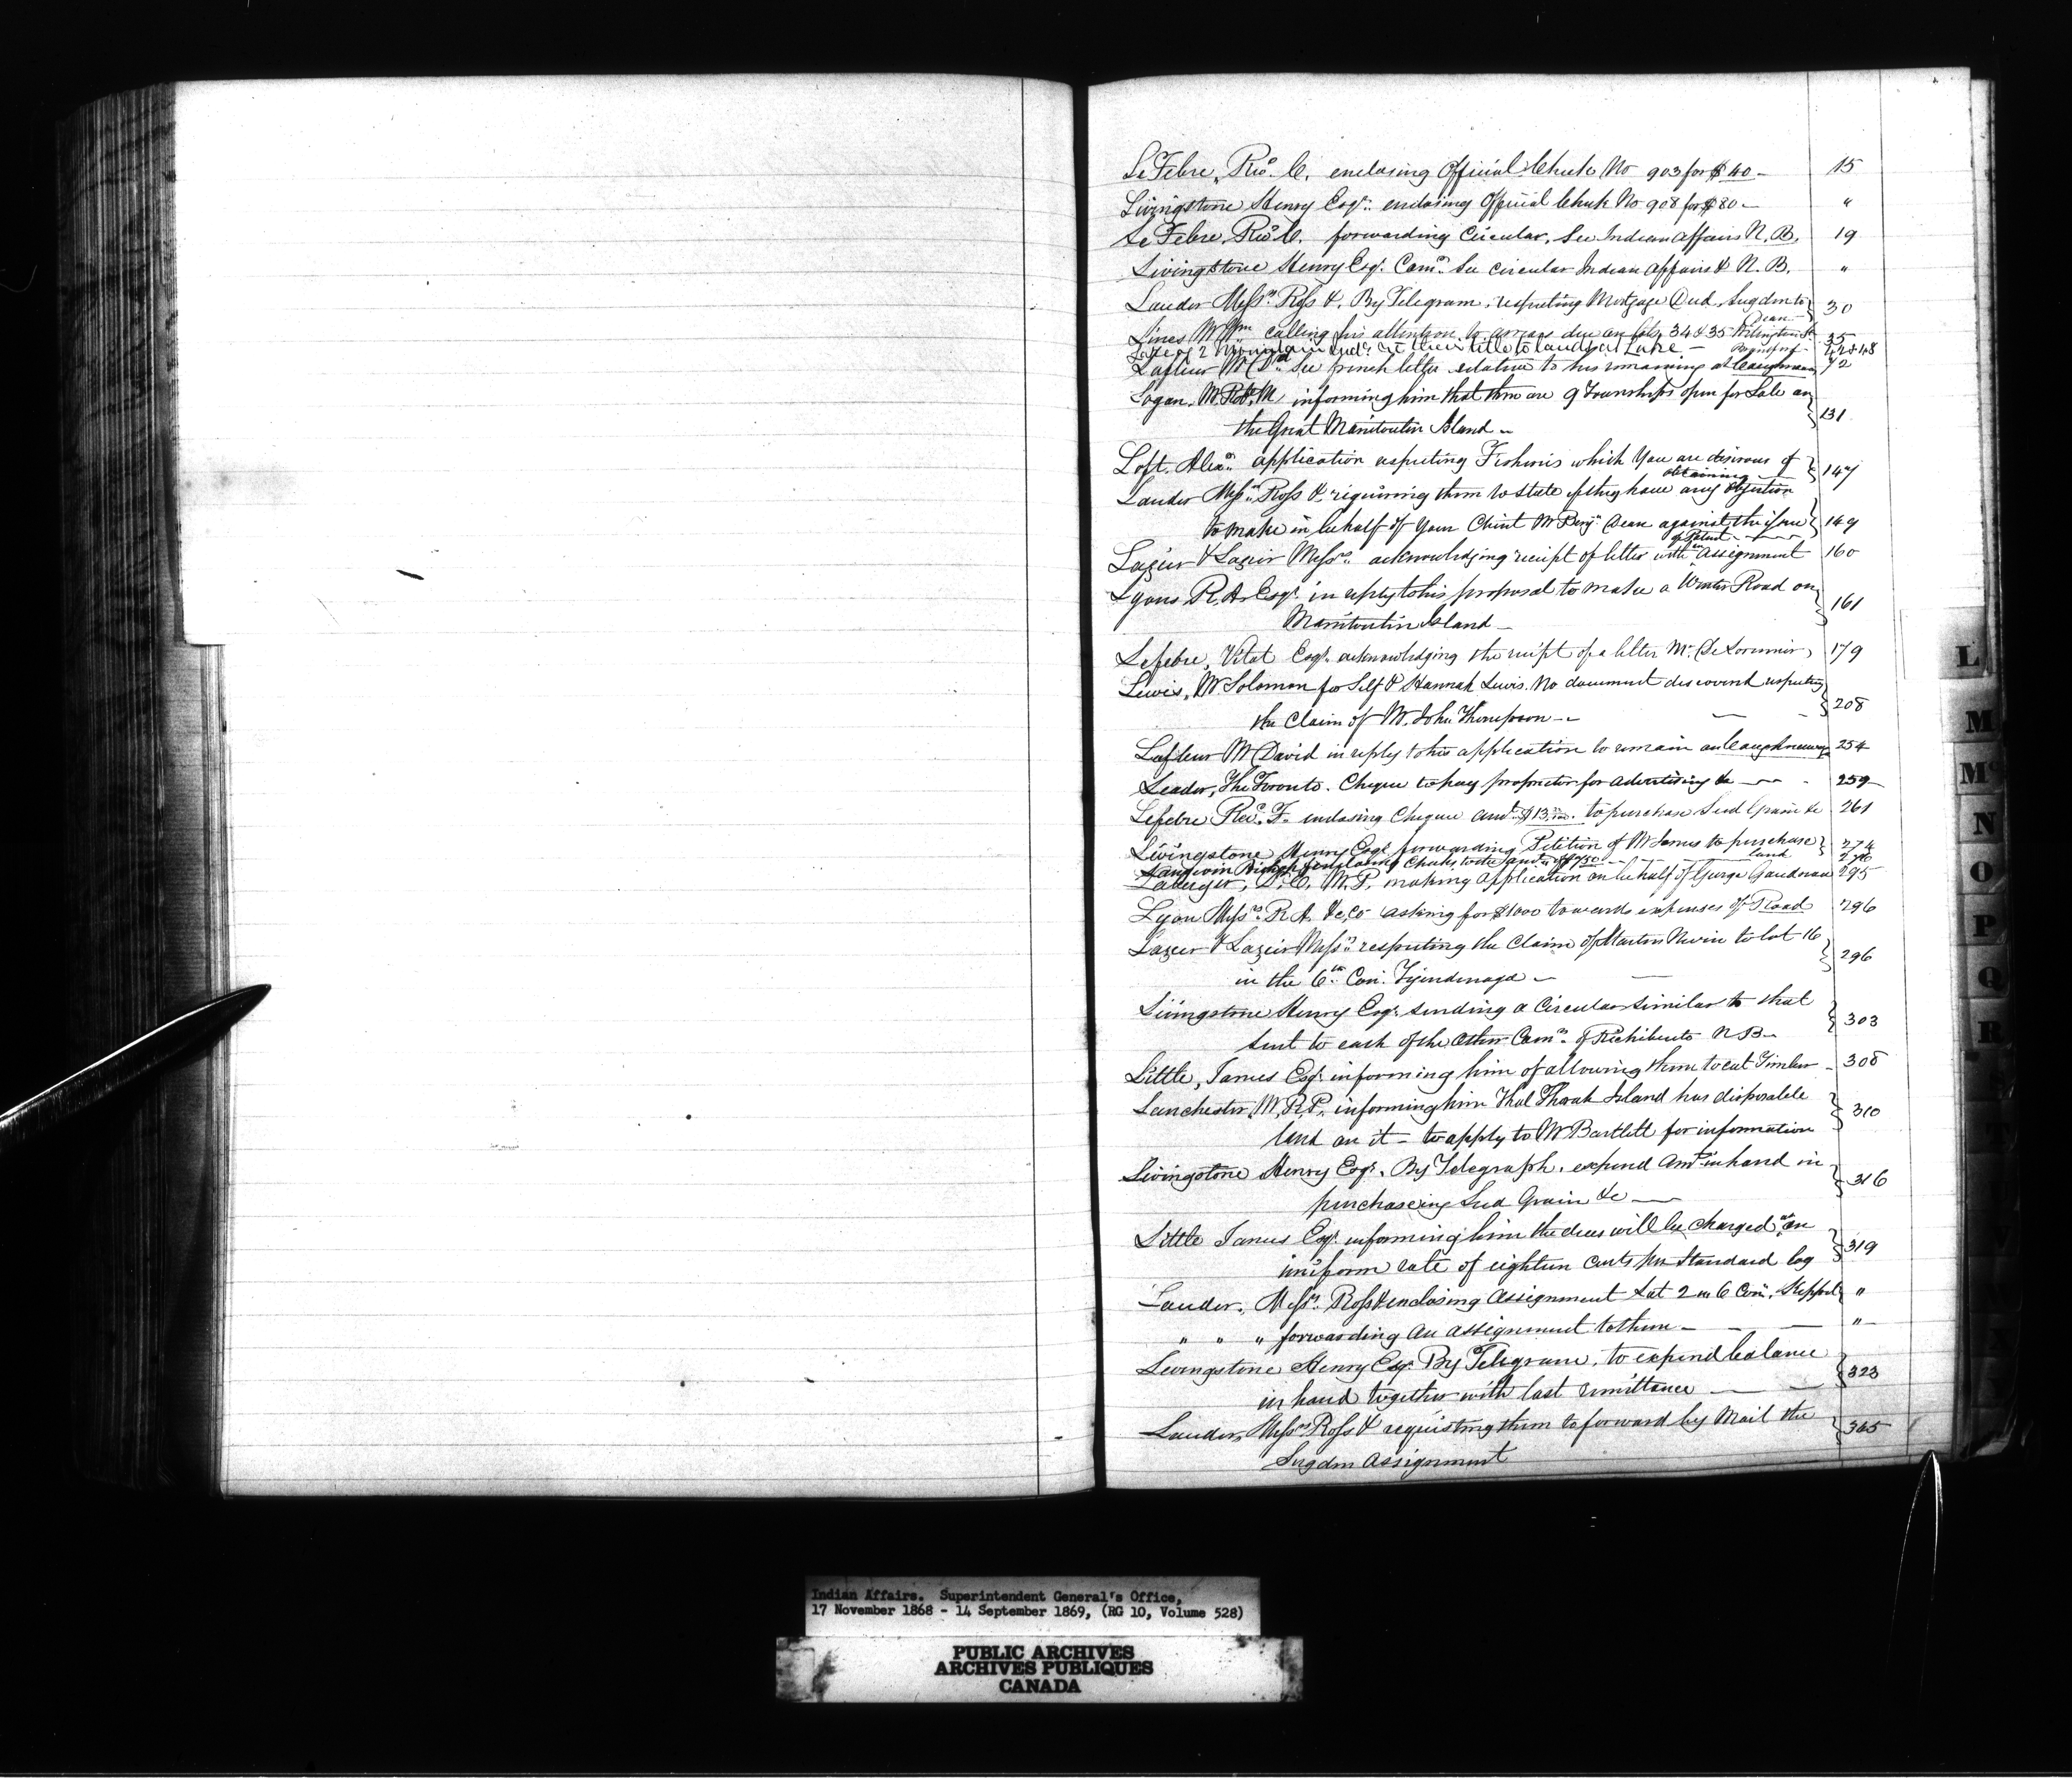 LeFebre, Revd. C. enclosing Official Check No 903 for $40 - 15
Livingstone Henry Esqr. enclosing Official Check No 908 for $80 - "
LeFebre, Revd C. forwarding Circular, See Indian Affairs N. B. 19
Livingstone Henry Esqr. Comr. See circular Indian Affairs & N. B. "
Lauder Messrs Ross &. By Telegram, respecting Mortgage Deed, Sugden to } 30
Dean
Lines Mr Wm calling his attention to arrears due on lots 34 & 35 35
Lake of 2 Mountain Inds re their title to lands at Lake - 42 & 48
Lafleur Mr Dd. See french letter relative to his remaining at Caughnawaga 72
Logan, Mr Robt. M informing him that there are 9 Townships open for Sale on
the Great Manitoulin Island - } 131
Loft. Alexr. application respecting Fisheries which You are desirous of
obtaining } 147
Lauder Messrs. Ross & requiring them to state if they have any objection
to make in behalf of Your Client Mr Benj. Dean against the issue } 149
of Patent
Lazier & Lazier Messrs. acknowledging receipt of letter with an Assignment 160
Lyons R. A. Esqr. in reply to his proposal to make a Winter Road on
Manitoulin Island - } 161
Lefebre, Vital Esqr. acknowledging the receipt of a letter Mr. DeLorimier, 179
Lewis, Mr Solomon for Self & Hannah Lewis. No document discovered respecting
the Claim of Mr. John Thompson - } 208
Lafleur Mr David in reply to his application to remain on Caughnawaga 254
Leader, The Toronto. Cheque to pay proprietor for Advertising &c 259
Lefebre Revd. F. enclosing Cheque amt. $13 to purchase Seed Grain &c 261
Livingstone Henry Esqr. forwarding Petition of Mr James to purchase } 274
land
Langevin Bishop enclosing Checks to the amt. of $750 276
D. C. M. P. making application on behalf of George 295
Lyon Messrs R. A. & Co asking for $1000 towards expenses of Road 296
Lazier & Lazier Messrs. respecting the Claim of Martin Nevin to lot 16
in the 6th. Con. Tyendinaga - } 296
Livingstone Henry Esqr. sending a Circular similar to that
sent to each of the other Comrs. of Richibucto N B - } 303
Little, James Esqr. informing him of allowing them to cut Timber - 308
Lanchester, Mr. R. P. informing him that Thorah Island has disposable
land on it - to apply to Mr Bartlett for information } 310
Livingstone Henry Esqr. By Telegraph. expend Amt. in hand in
purchaseing Seed Grain &c } 316
Little James Esqr. informing him the dues will be charged at an
uniform rate of eighteen cents per Standard log } 319
Lauder, Messrs. Ross & enclosing Assignment Lot 2 in 6 Con. Keppel "
" " " forwarding an assignment to them - "
Livingstone Henry Esqr. By Telegram. to expend balance
in hand together with last remittance } 323
Lauder, Messrs Ross & requesting them to forward by Mail the
Sugden Assignment } 365
L
M
Mc
N
O
P
Q
R
Indian Affairs. Superintendent General's Office,
17 November 1868 - 14 September 1869, (RG 10, Volume 528)
PUBLIC ARCHIVES
ARCHIVES PUBLIQUES
CANADA